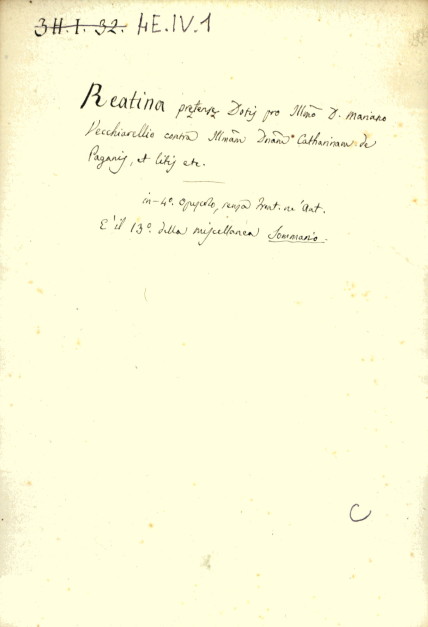 3H.I.32. 4E.IV.1
Reatina prętensę Dotis pro Illmo D. Mariano
Vecchiarellio contra Illmam Dnam Catharinam de
Paganis, et litis etc.
in-4o. opuscolo, senza front. ne' Aut.
E' il 13o. della miscellanea Sommario.
C